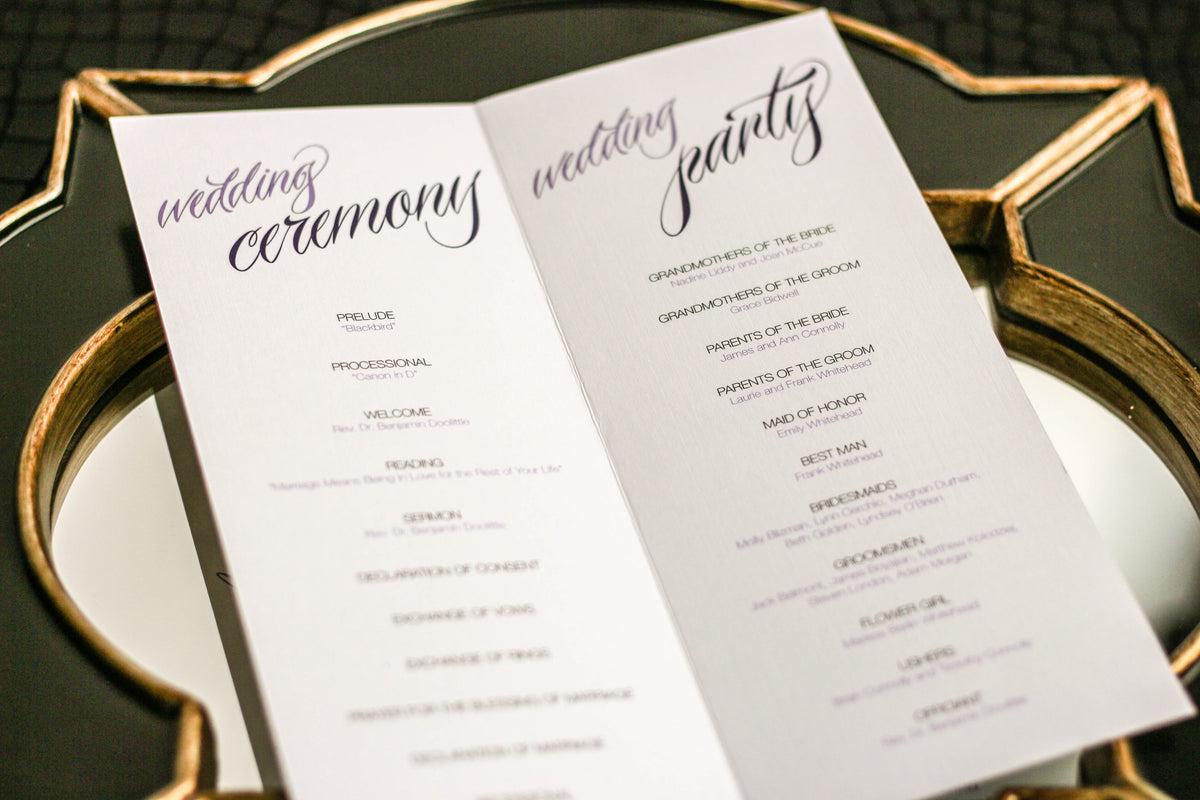 wedding
ceremony
PRELUDE
"Blackbird"
PROCESSIONAL
"Canon in D"
WELCOME
Rev. Dr. Benjamin Doolittle
READING
"Marriage Means Being in Love for the Rest of Your Life"
SERMON
Rev. Dr. Benjamin Doolittle
DECLARATION OF CONSENT
EXCHANGE OF VOWS
EXCHANGE OF RINGS
PRAYER FOR THE BLESSING OF MARRIAGE
DECLARATION OF MARRIAGE
wedding
party
GRANDMOTHERS OF THE BRIDE
Nadine Liddy and Joan McCue
GRANDMOTHERS OF THE GROOM
Grace Bidwell
PARENTS OF THE BRIDE
James and Ann Connolly
PARENTS OF THE GROOM
Laurie and Frank Whitehead
MAID OF HONOR
Emily Whitehead
BEST MAN
Frank Whitehead
BRIDESMAIDS
Molly Blizman, Lynn Cerchio, Meghan Durham,
Beth Golden, Lyndsey O'Brien
GROOMSMEN
Jack Belmont, James Boyajian, Matthew Kolodziej,
Steven London, Adam Morgan
FLOWER GIRL
Whitehead
USHERS
Brian Connolly and Timothy Connolly
OFFICIANT
Rev. Dr. Benjamin Doolittle